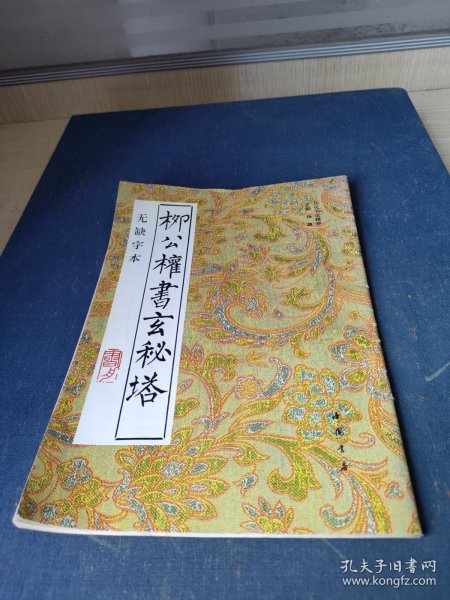 柳公權書玄秘塔
无缺字本
中国书店
孔夫子旧书网
www.kongfz.com